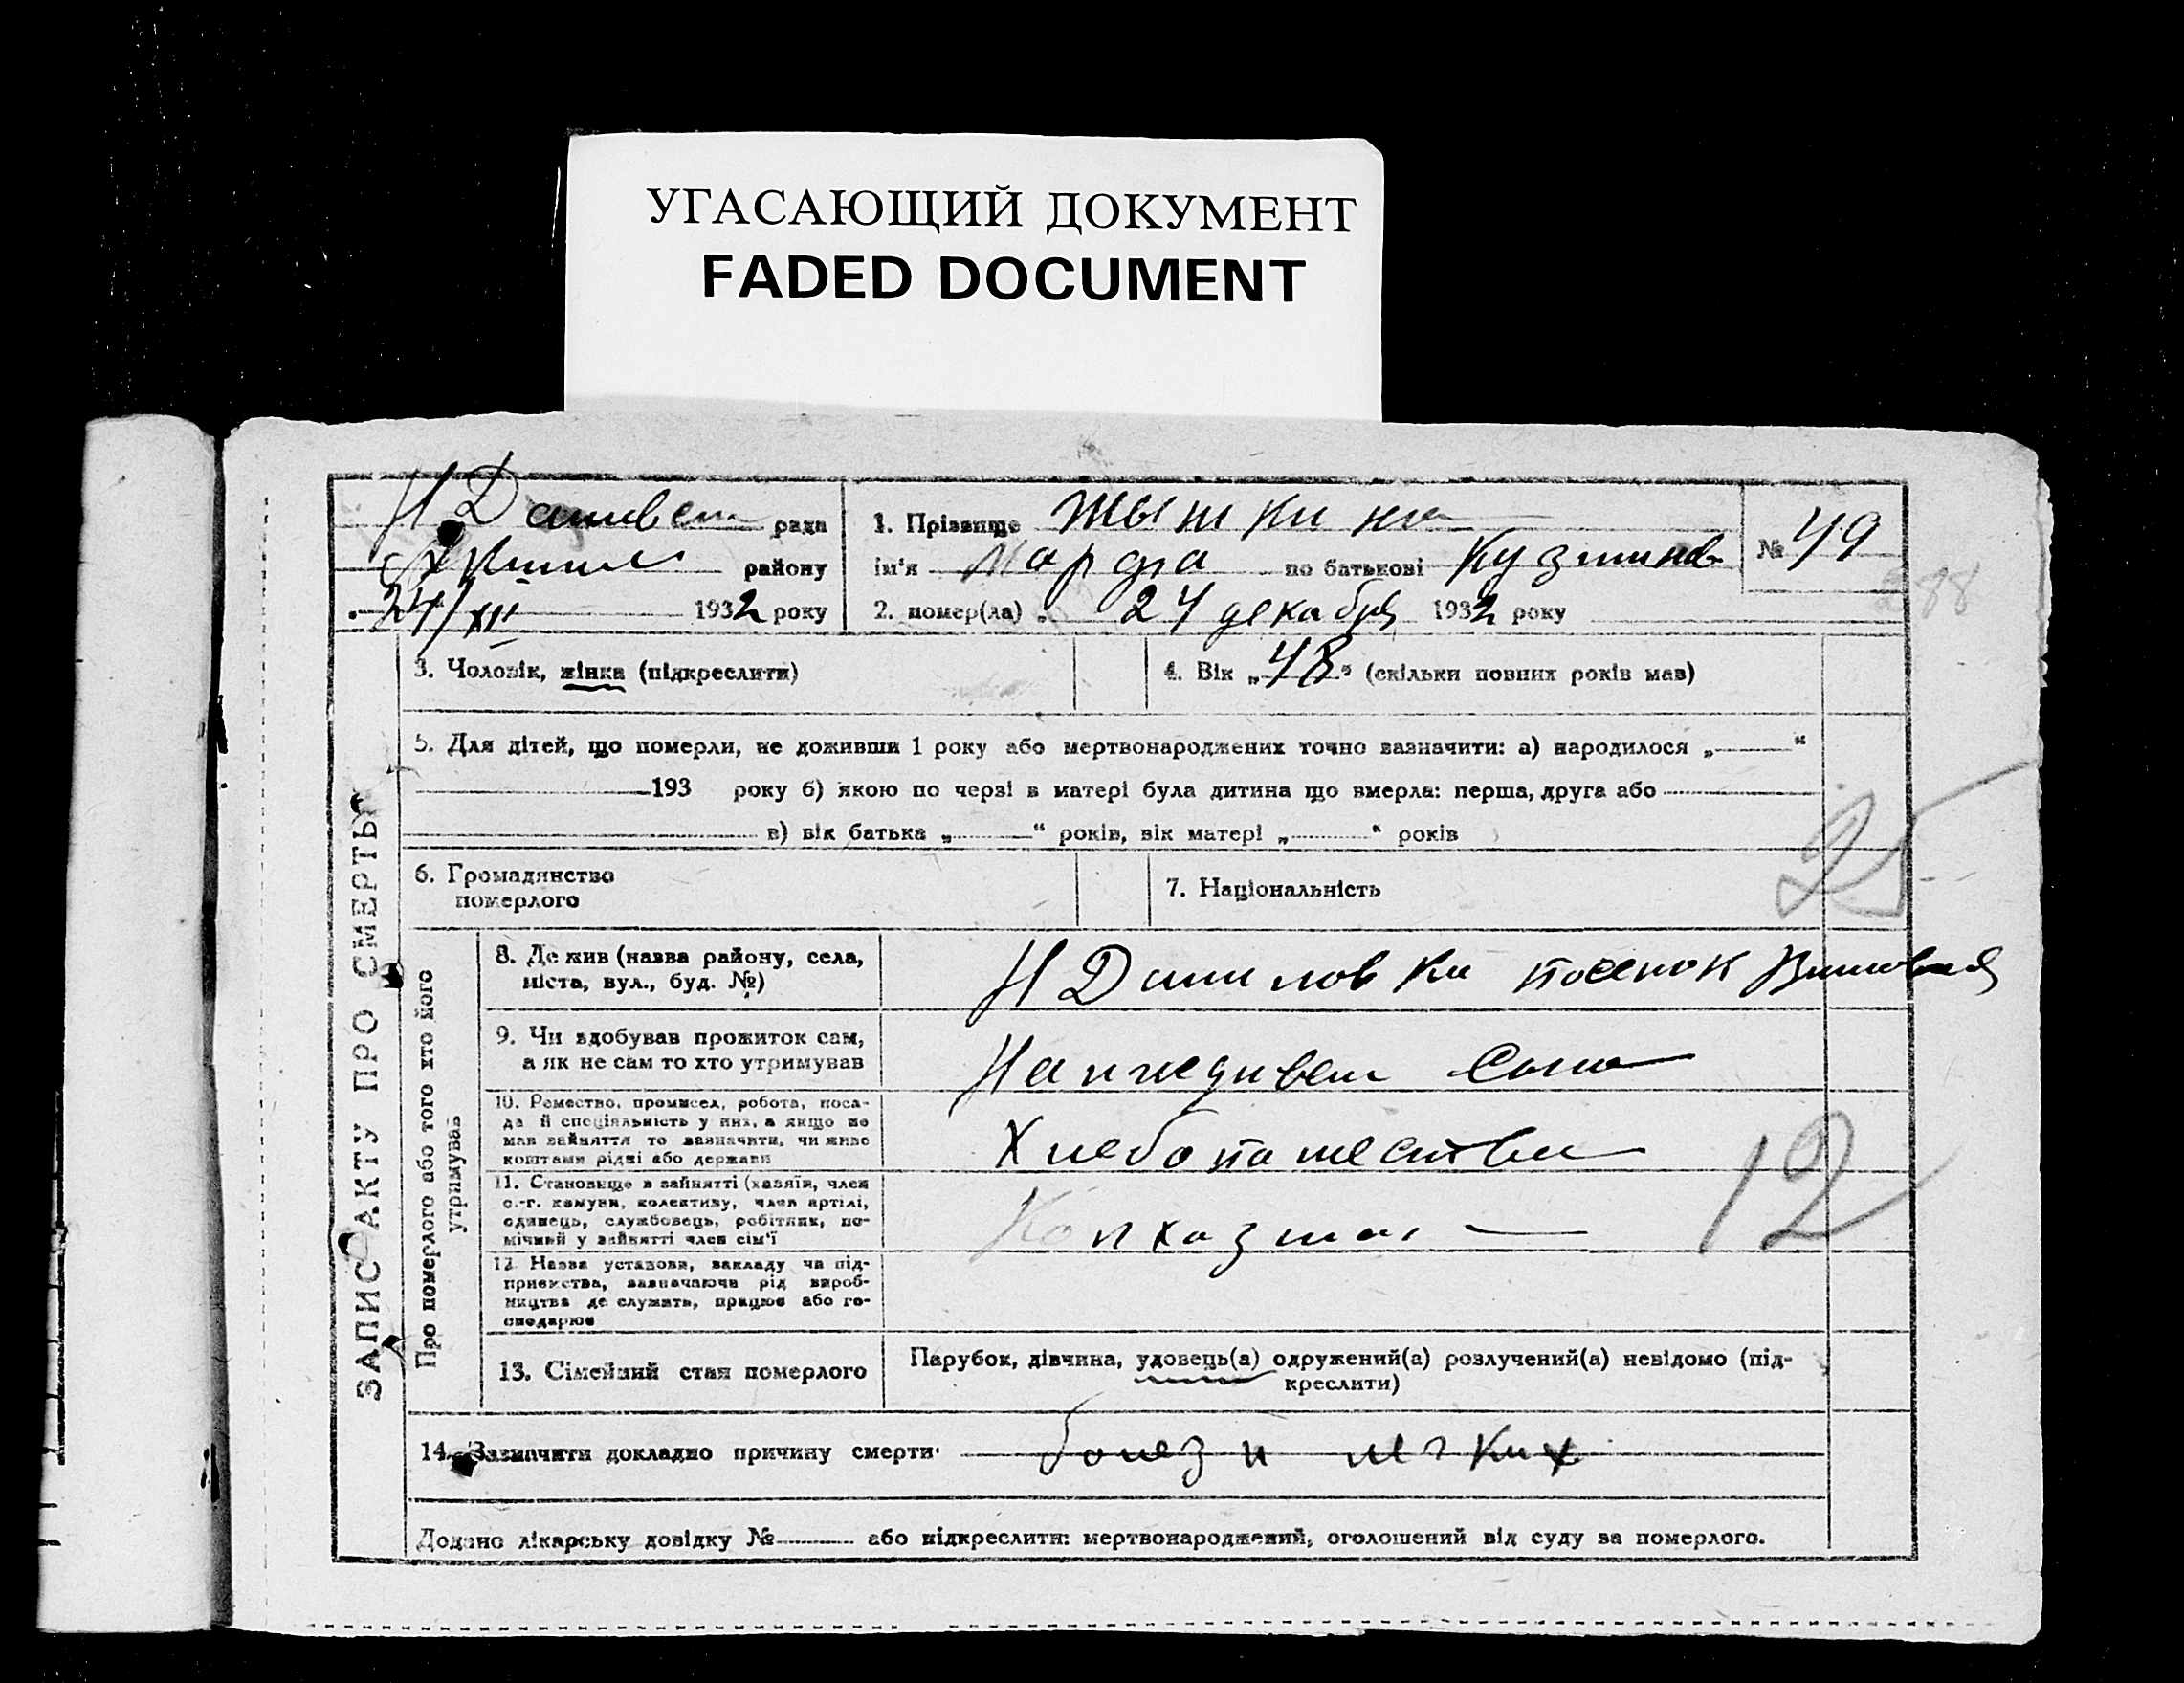 УГАСАЮЩИЙ ДОКУМЕНТ
FADED DOCUMENT
рада
району
24/XII 1932 року
1. Прізвище
ім'я по батькові
2. помер(ла) 24 декабря 1932 року
№ 49
288
3. Чоловік, жінка (підкреслити)
4. Вік „48" (скільки повних років мав)
5. Для дітей, що померли, не доживши 1 року або мертвонароджених точно зазначити: а) народилося „ “
193 року б) якою по черзі в матері була дитина що вмерла: перша, друга або
в) вік батька „ “ років, вік матері „ “ років
25
6. Громадянство
померлого
7. Національність
ЗАПИС АКТУ ПРО СМЕРТЬ
Про померлого або того хто його
утримував
8. Де жив (назва району, села,
міста, вул., буд. №)
Н Даниловка
9. Чи здобував прожиток сам,
а як не сам то хто утримував
На иждивен сына
10. Ремество, промисел, робота, поса-
да й спеціяльність у них, а якщо не
мав зайняття то зазначити, чи живе
коштами рідні або держави
Хлебопашество
11. Становище в зайнятті (хазяїн, член
с.-г. комуни, колективу, член артілі,
одинець, службовець, робітник, по-
мічний у зайнятті член сім'ї
12
12. Назва установи, закладу чи під-
приємства, зазначаючи рід вироб-
ництва де служить, працює або го-
сподарює
13. Сімейний стан померлого
Парубок, дівчина, удовець(а) одружений(а) розлучений(а) невідомо (під-
креслити)
14. Зазначити докладно причину смерти болезн легких
Додано лікарську довідку № або підкреслити: мертвонароджений, оголошений від суду за померлого.